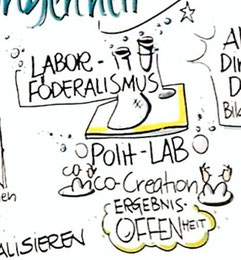 LABOR-
FÖDERALISMUS
Polit-LAB
Co-Creation
ERGEBNIS-
OFFENHEIT
ALISIEREN